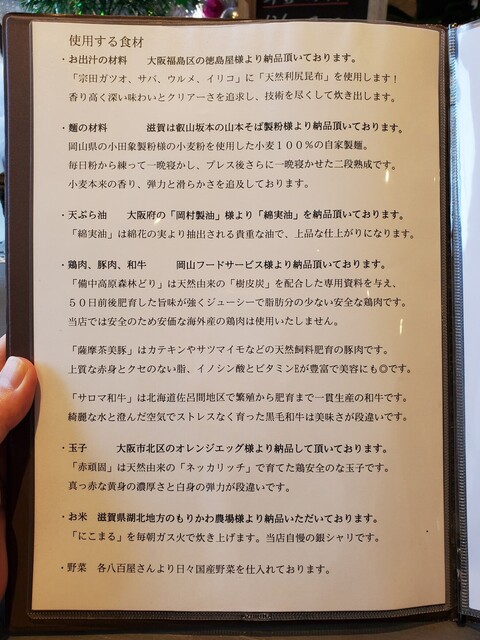 使用する食材
・お出汁の材料　大阪福島区の徳島屋様より納品頂いております。
「宗田ガツオ、サバ、ウルメ、イリコ」に「天然利尻昆布」を使用します！
香り高く深い味わいとクリアーさを追求し、技術を尽くして炊き出します。
・麺の材料　滋賀は叡山坂本の山本そば製粉様より納品頂いております。
岡山県の小田象製粉様の小麦粉を使用した小麦１００％の自家製麺。
毎日粉から練って一晩寝かし、プレス後さらに一晩寝かせた二段熟成です。
小麦本来の香り、弾力と滑らかさを追及しております。
・天ぷら油　大阪府の「岡村製油」様より「綿実油」を納品頂いております。
「綿実油」は綿花の実より抽出される貴重な油で、上品な仕上がりになります。
・鶏肉、豚肉、和牛　岡山フードサービス様より納品頂いております。
「備中高原森林どり」は天然由来の「樹皮炭」を配合した専用資料を与え、
５０日前後肥育した旨味が強くジューシーで脂肪分の少ない安全な鶏肉です。
当店では安全のため安価な海外産の鶏肉は使用いたしません。
「薩摩茶美豚」はカテキンやサツマイモなどの天然飼料肥育の豚肉です。
上質な赤身とクセのない脂、イノシン酸とビタミンEが豊富で美容にも◎です。
「サロマ和牛」は北海道佐呂間地区で繁殖から肥育まで一貫生産の和牛です。
綺麗な水と澄んだ空気でストレスなく育った黒毛和牛は美味さが段違いです。
・玉子　大阪市北区のオレンジエッグ様より納品して頂いております。
「赤頑固」は天然由来の「ネッカリッチ」で育てた鶏安全のな玉子です。
真っ赤な黄身の濃厚さと白身の弾力が段違いです。
・お米　滋賀県湖北地方のもりかわ農場様より納品いただいております。
「にこまる」を毎朝ガス火で炊き上げます。当店自慢の銀シャリです。
・野菜　各八百屋さんより日々国産野菜を仕入れております。